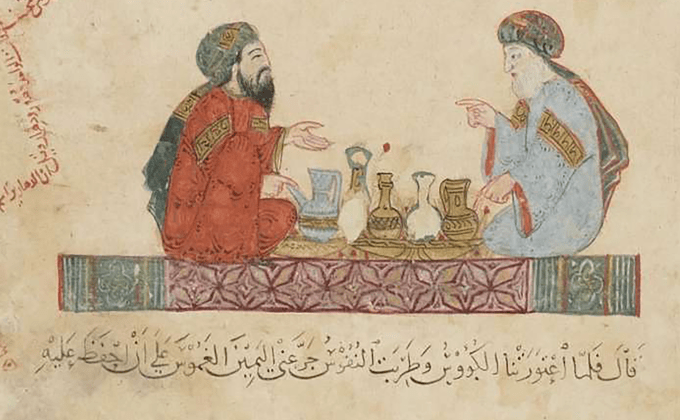 قَالَ فَلَمَّا اعْتَوَرَتْنَا الكُؤُوسُ وَطَرِبَتِ النُفُوسُ جَرَّعَنِي اليَمِينَ الغَمُوسَ عَلَى أَنْ احْفَظَ عَلَيْهِ